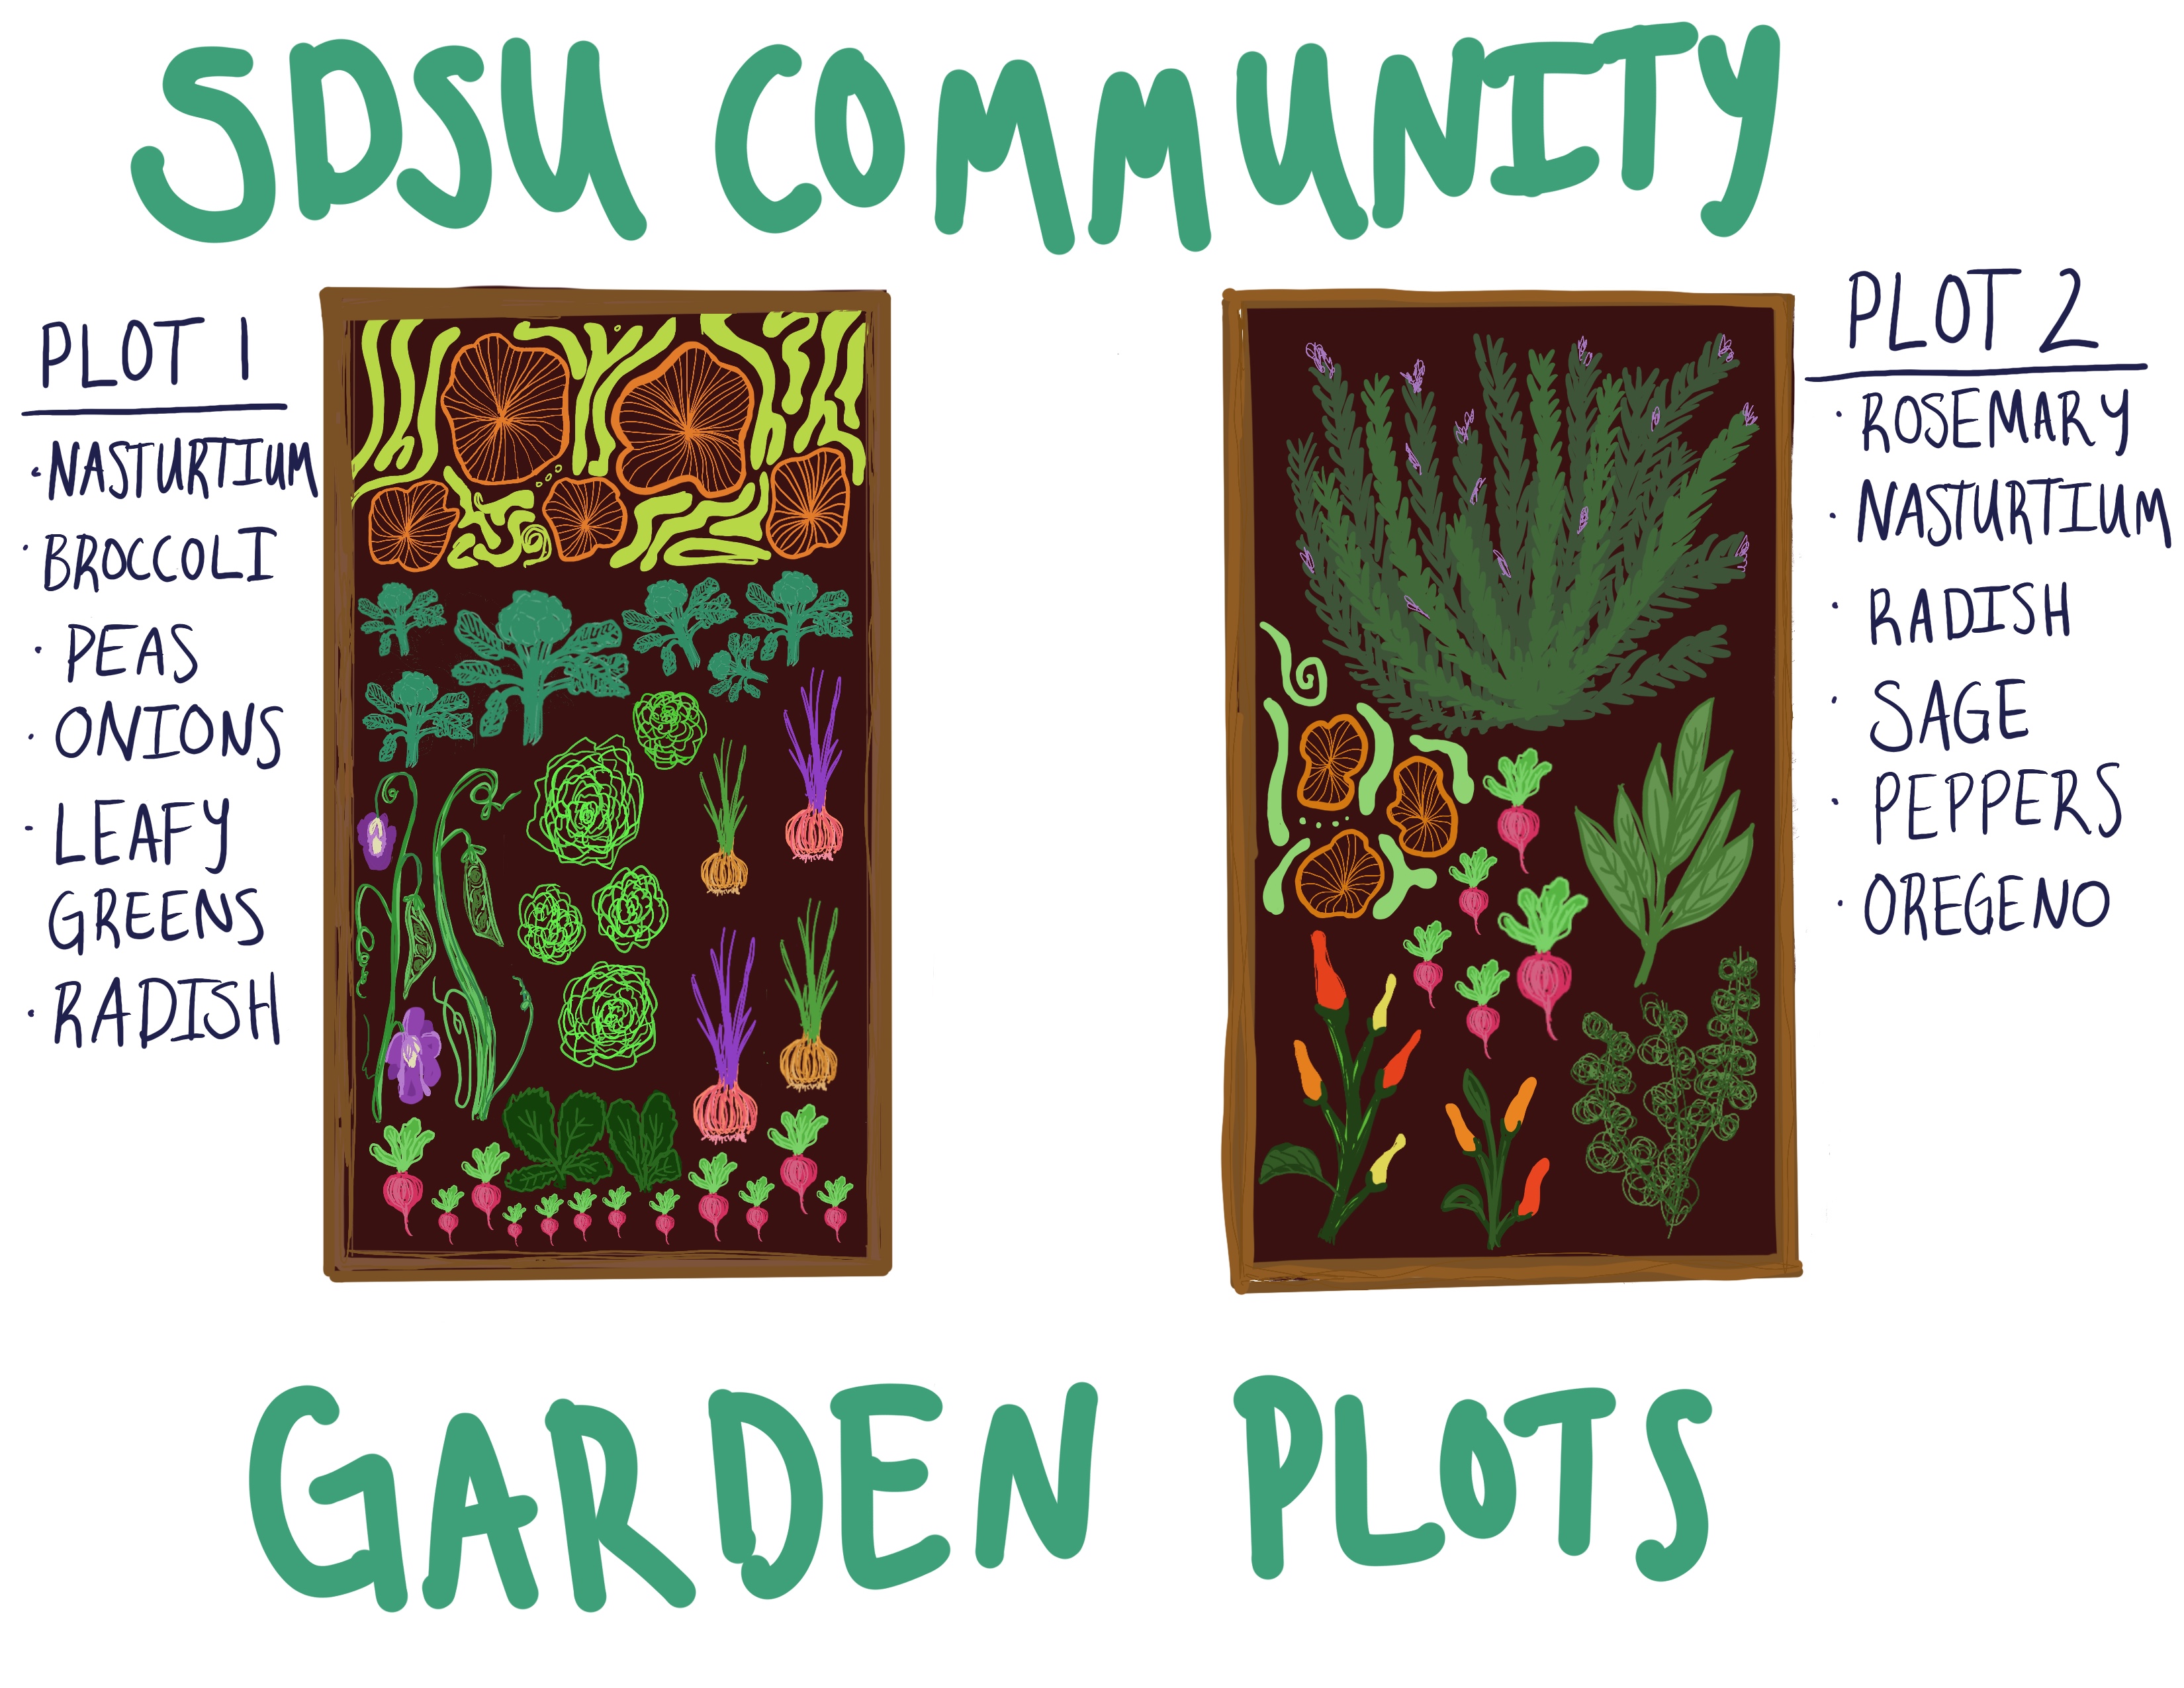 SDSU COMMUNITY
PLOT 1
·NASTURTIUM
·BROCCOLI
·PEAS
·ONIONS
·LEAFY
GREENS
·RADISH
PLOT 2
·ROSEMARY
·NASTURTIUM
·RADISH
·SAGE
·PEPPERS
·OREGENO
GARDEN PLOTS